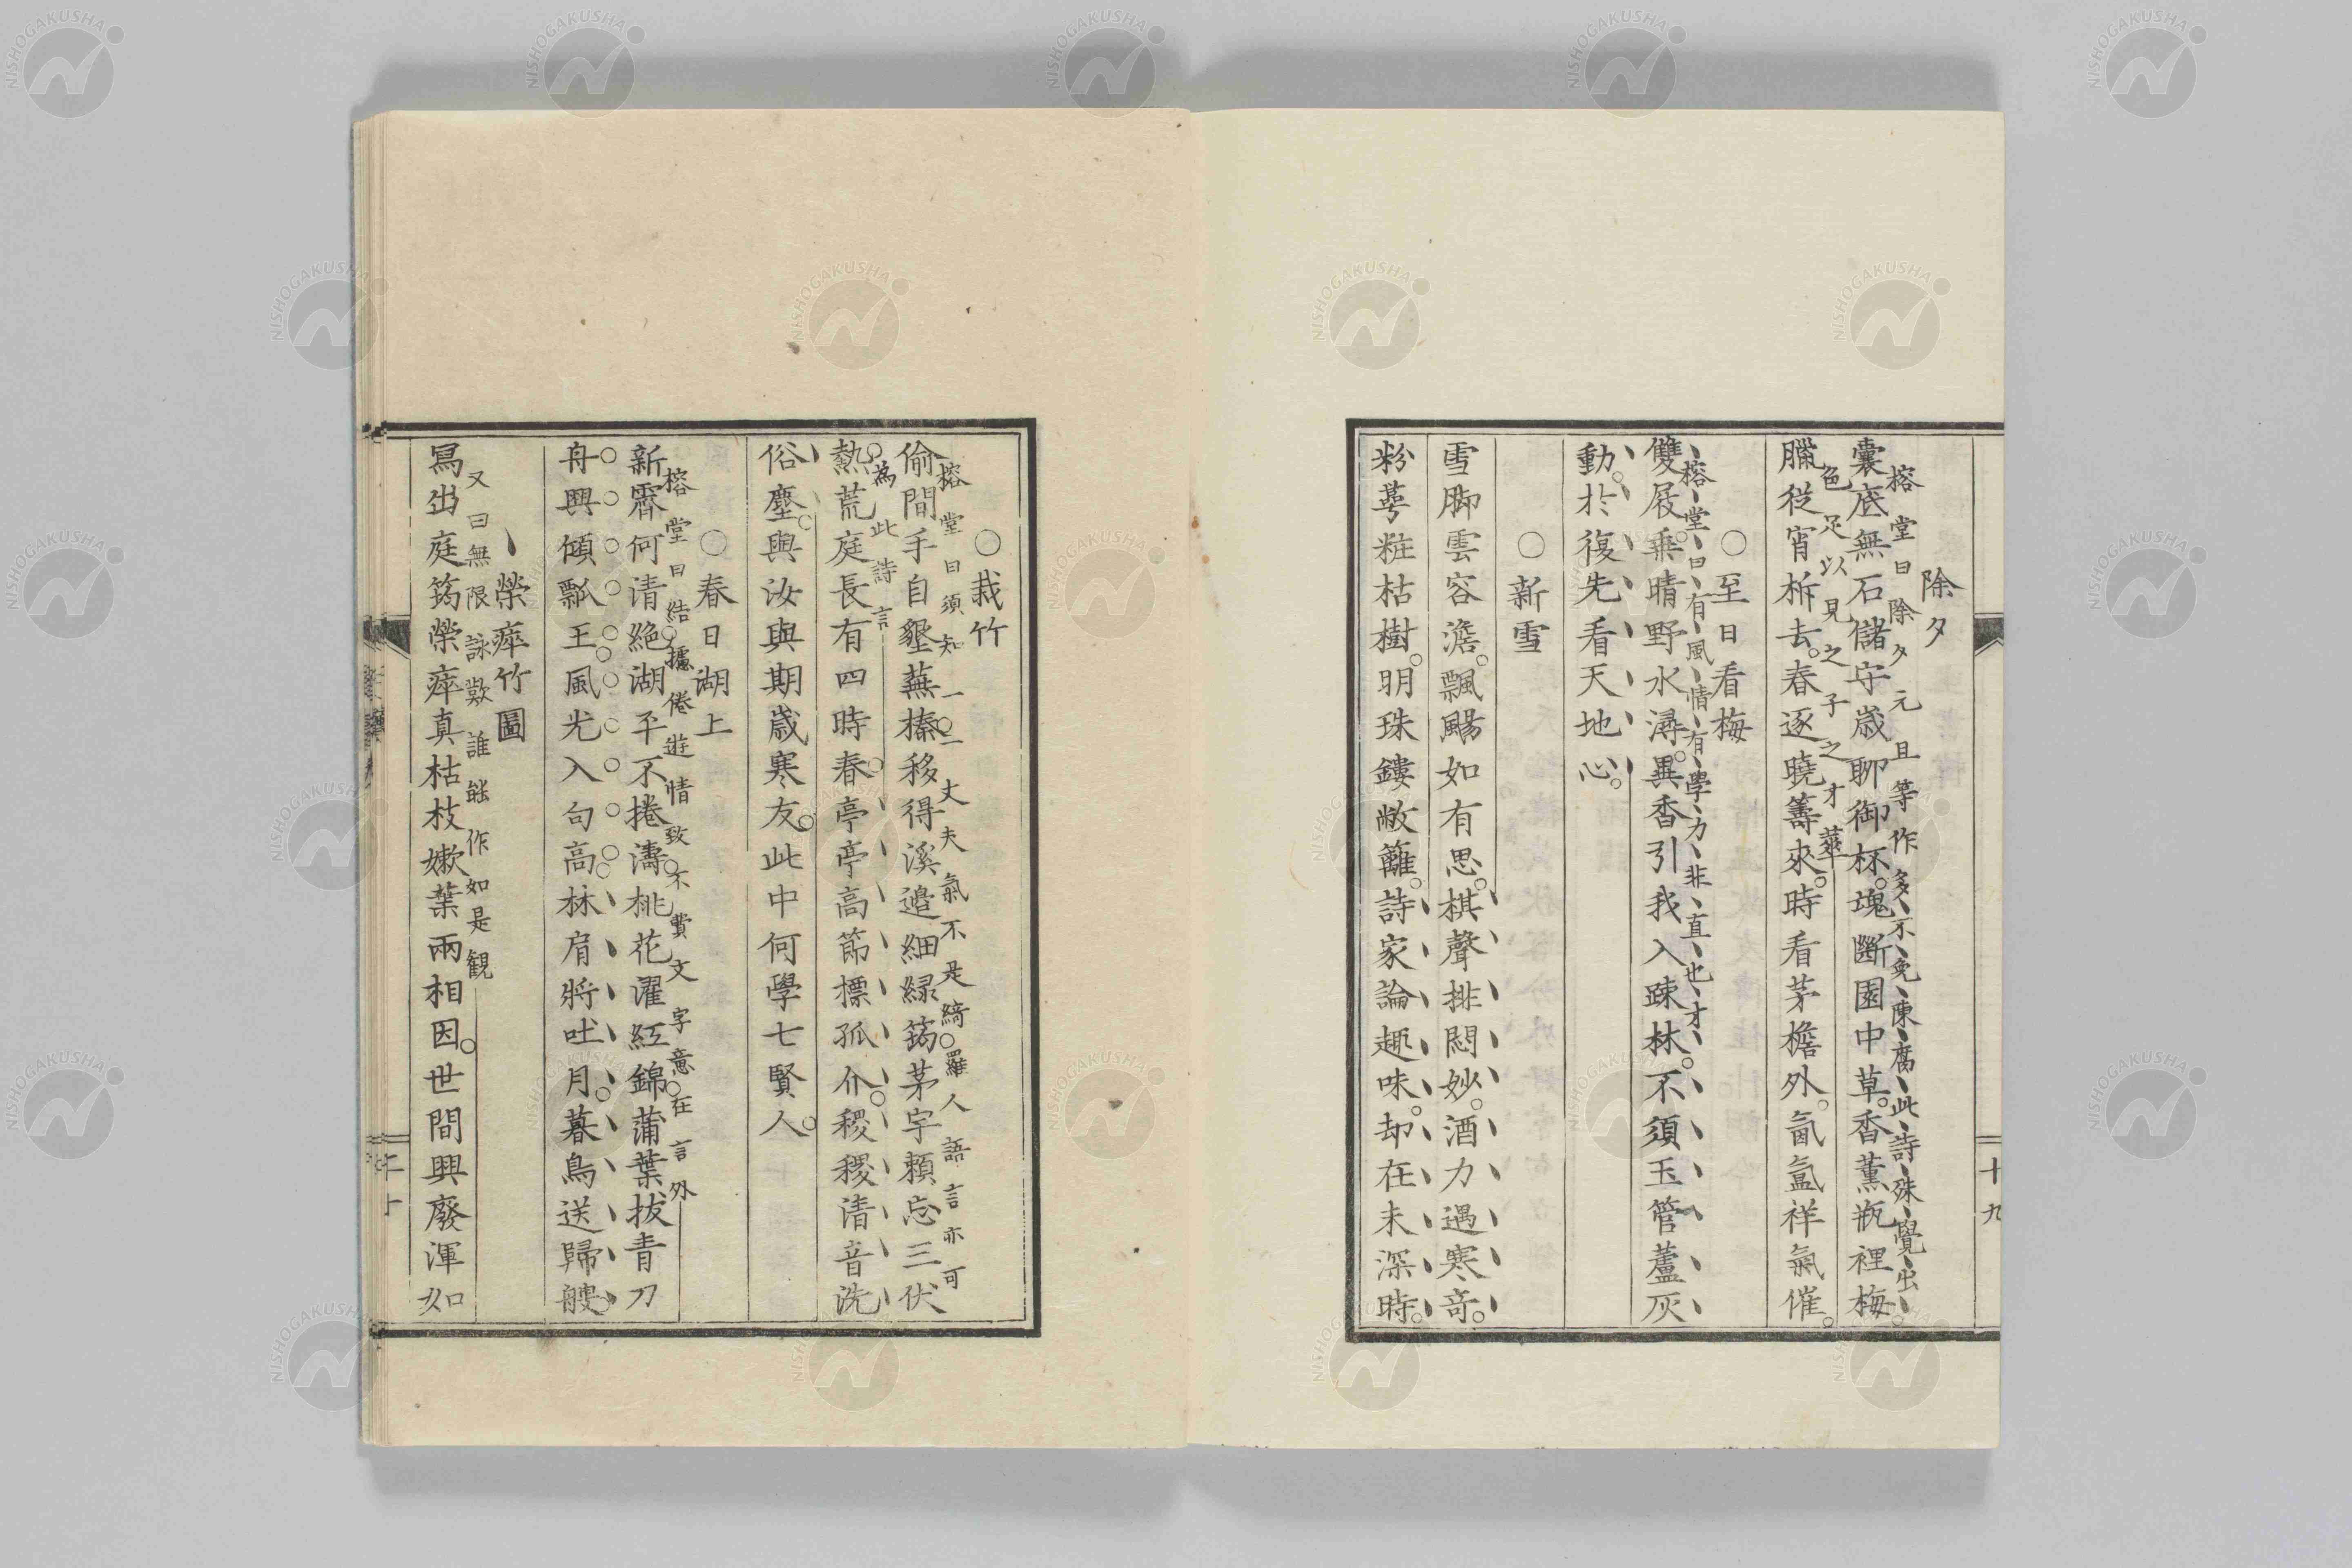 除夕
榕堂曰除夕元且等作多不免陳腐此詩殊覺出
囊底無石儲守歳聊御杯塊斷園中草香薫瓶裡梅
色足以見之子之才華
臘従宵柝去春逐曉籌來時看茅檐外氤氳祥氣催
○至日看梅
榕堂曰有風情有學力非直也才
雙屐乗晴野水潯異香引我入疎林不須玉管蘆灰
動於復先看天地心
○新雪
雪脚雲容澹飄颺如有思棋聲排悶妙酒力遇寒竒
粉萼粧枯樹明珠鏤敝籬詩家論趣味却在未深時
十九
○栽竹
榕堂曰須知一丈夫氣不是綺羅人語言亦可
偷間手自墾蕪榛移得溪邉細緑筠茅宇頼忘三伏
為此詩言
熱荒庭長有四時春亭亭高節摽孤介稷稷清音洗
俗塵與汝與期歳寒友此中何學七賢人
○春日湖上
榕堂曰結攄倦遊情致不費文字意在言外
新霽何清絶湖平不捲濤桃花濯紅錦蒲葉拔青刀
舟興傾瓢王風光入句高林肩將吐月暮鳥送歸艘
榮瘁竹圖
又曰無限詠歎誰能作如是観
冩出庭筠榮瘁真枯枝嫰葉兩相因世間興廢渾如
NISHOGAKUSHA